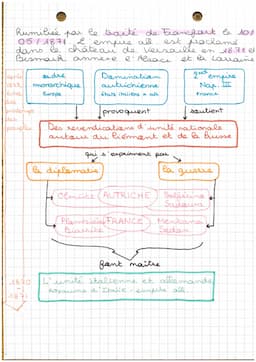 Humiliée par le traité de Francfort le 10/
05/1871 L'empire all. est proclamé
dans le château de Versailles en 1871 et
Bismark annexe l'Alsace et la Lorraine
ordre
monarchique
Europe
Domination
autrichienne
États italiens + all
2nd empire
Nap. III
France
provoquent
soutient
Des revendications d'unité nationale
autour du Piémont et de la Prusse
qui s'expriment par
la diplomatie
la guerre
AUTRICHE
Solférino
Sadowa
Plombières
Biarritz
FRANCE
Mentana
Sedan
font naître
1870
-
1871
L'unité italienne et allemande
royaume d'Italie - empire all.